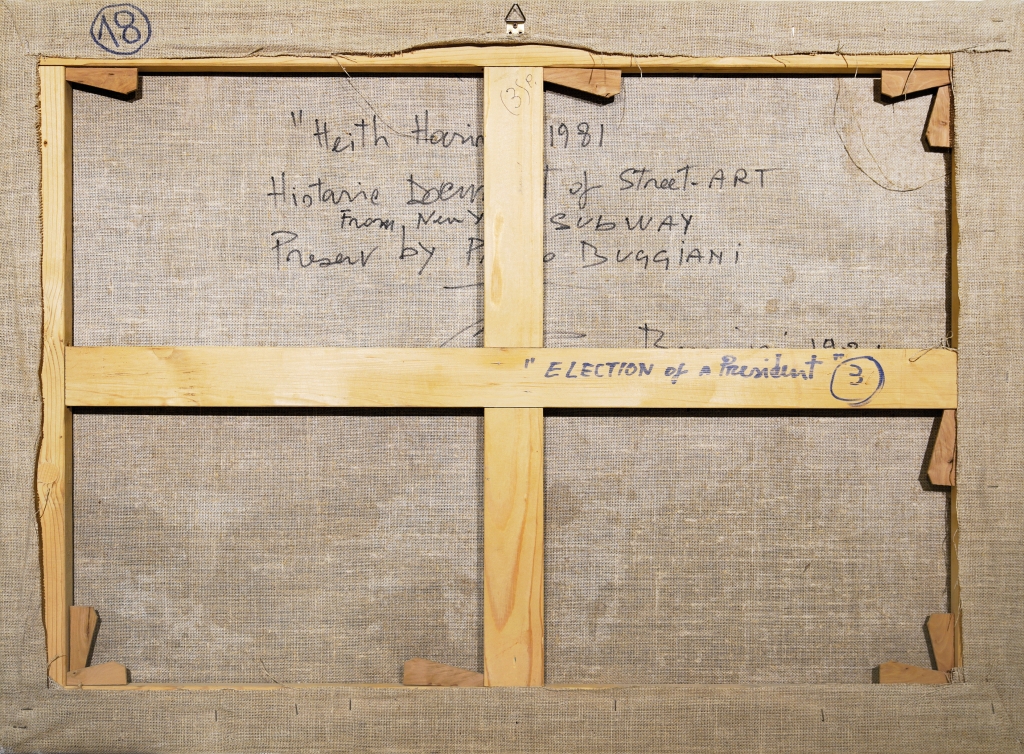 18
3 SP.
"Heith Harin 1981
Historic Docum t of Street-ART
From New Y SUBWAY
Preserv by P o BUGGIANI
1981
"ELECTION of a President" 3